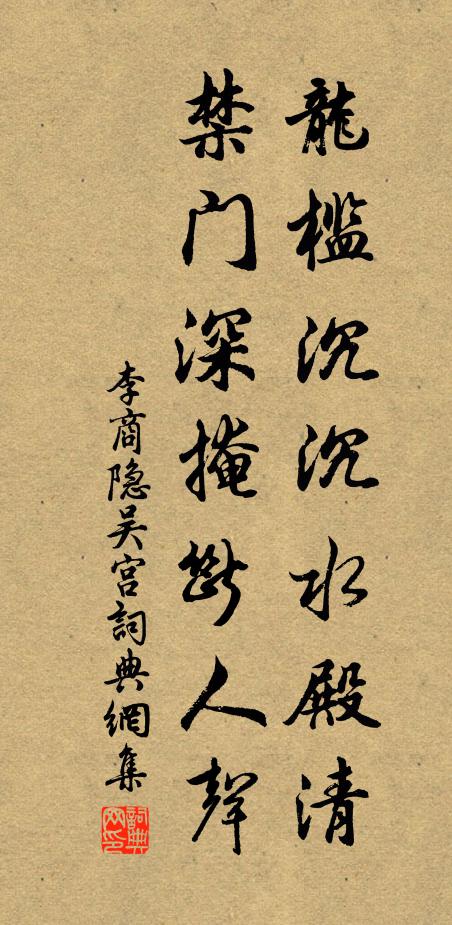 龍檻沉沉水殿清
禁门深掩斷人聲
李商隐吴宫詞典網集
詞典网印